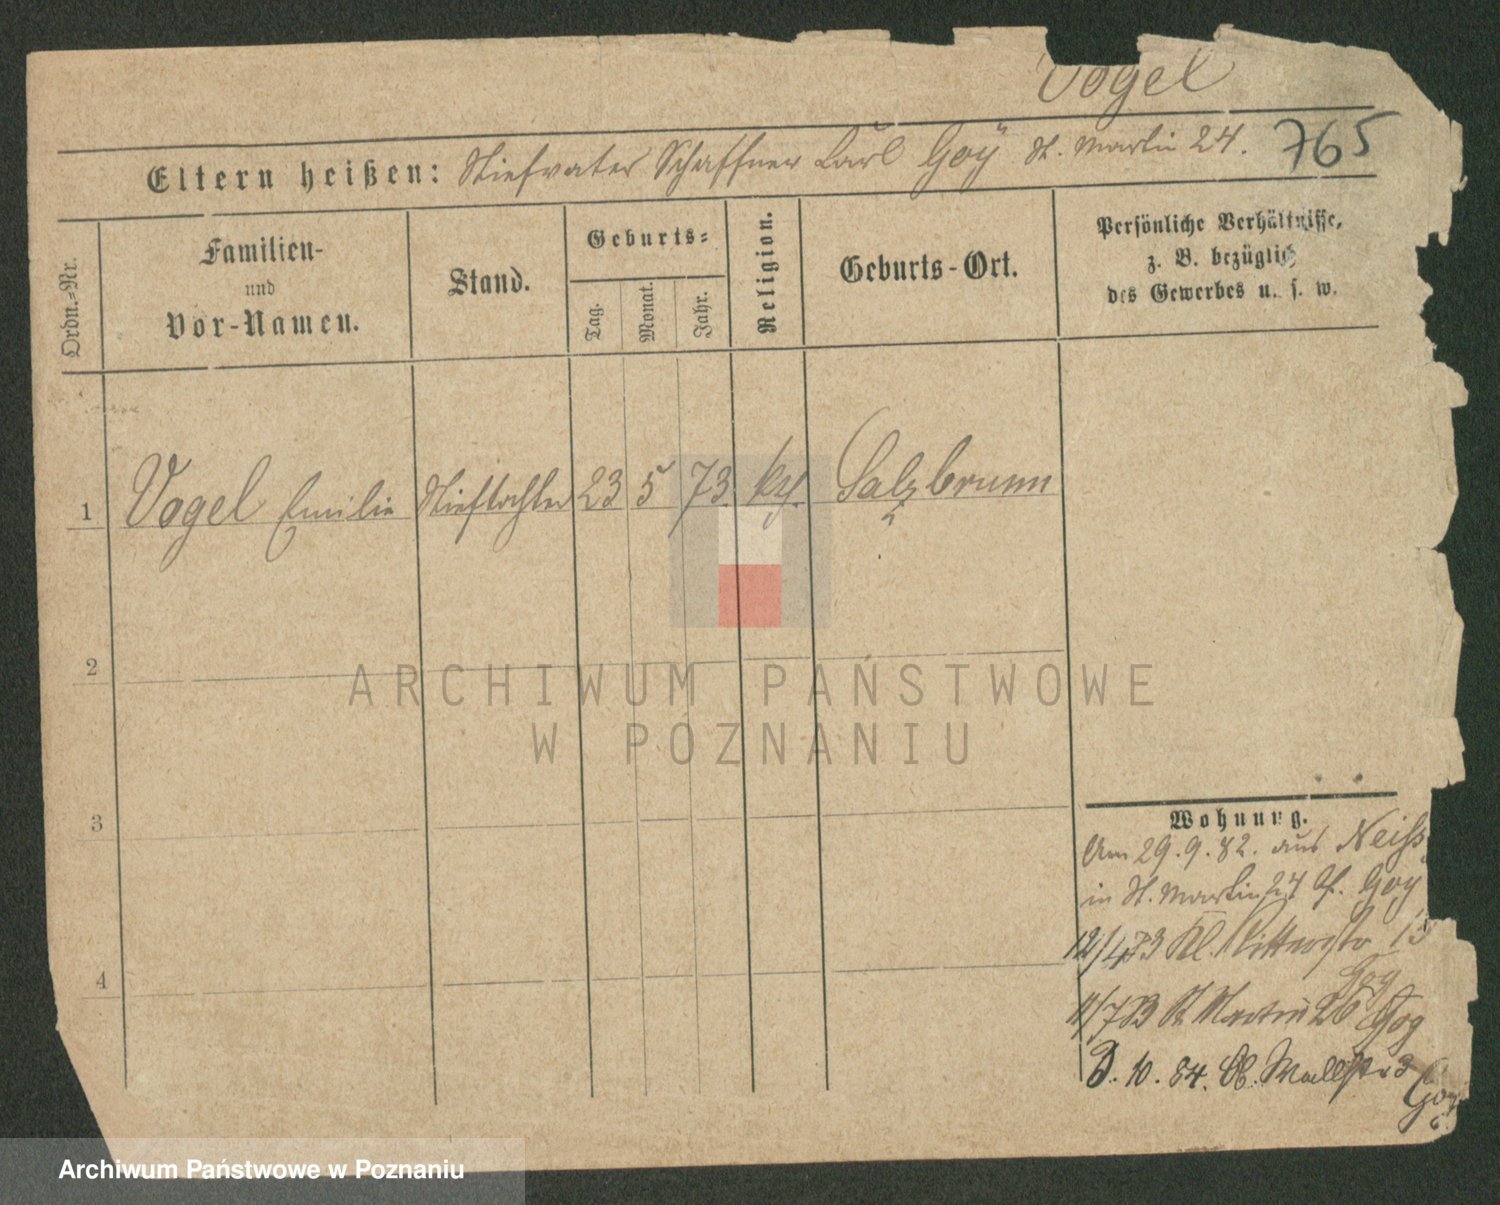 Vogel
Eltern heißen: Stiefvater Schaffner Carl Goÿ St. Martin 24. 765
Ordn.=Nr.
Familien-
und
Vor-Namen.
Stand.
Geburts=
Tag.
Monat.
Jahr.
Religion.
Geburts-Ort.
Persönliche Verhältnisse,
z. B. bezüglich
des Gewerbes u. s. w.
1 Vogel Emilie Stieftochter 23 5 73. kth. Salzbrunn
2
3
4
Wohnung.
Am 29.9.82. aus Neiss
in St. Martin 24 Goy
12/4 83 Kl. Ritterstr 15
Goy
11/7 83 St Martin 26 Goy
3. 10. 84. Ob. Wallstr 3
Goy
ARCHIWUM PAŃSTWOWE
W POZNANIU
Archiwum Państwowe w Poznaniu